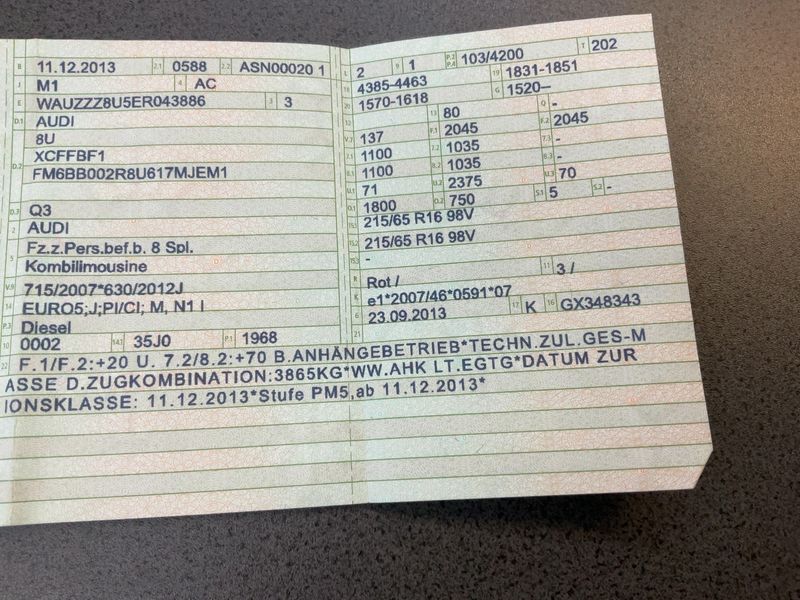 B 11.12.2013 2.1 0588 2.2 ASN00020 1
J M1 4 AC
E WAUZZZ8U5ER043886 3 3
D.1 AUDI
8U
D.2 XCFFBF1
FM6BB002R8U617MJEM1
D.3 Q3
2 AUDI
5 Fz.z.Pers.bef.b. 8 Spl.
Kombilimousine
V.9 715/2007*630/2012J
14 EURO5;J;PI/CI; M, N1 I
P.3 Diesel
10 0002 14.1 35J0 P.1 1968
L 2 9 1 P.2 P.4 103/4200 T 202
18 4385-4463 19 1831-1851
20 1570-1618 G 1520--
13 80 Q -
V.7 137 F.1 2045 F.2 2045
7.1 1100 7.2 1035 7.3 -
8.1 1100 8.2 1035 8.3 -
U.1 71 U.2 2375 U.3 70
O.1 1800 O.2 750 S.1 5 S.2 -
15.1 215/65 R16 98V
15.2 215/65 R16 98V
15.3 -
R Rot / 11 3 /
K e1*2007/46*0591*07
6 23.09.2013 17 K 16 GX348343
21
22 F.1/F.2:+20 U. 7.2/8.2:+70 B.ANHÄNGEBETRIEB*TECHN.ZUL.GES-M
ASSE D.ZUGKOMBINATION:3865KG*WW.AHK LT.EGTG*DATUM ZUR
IONSKLASSE: 11.12.2013*Stufe PM5,ab 11.12.2013*